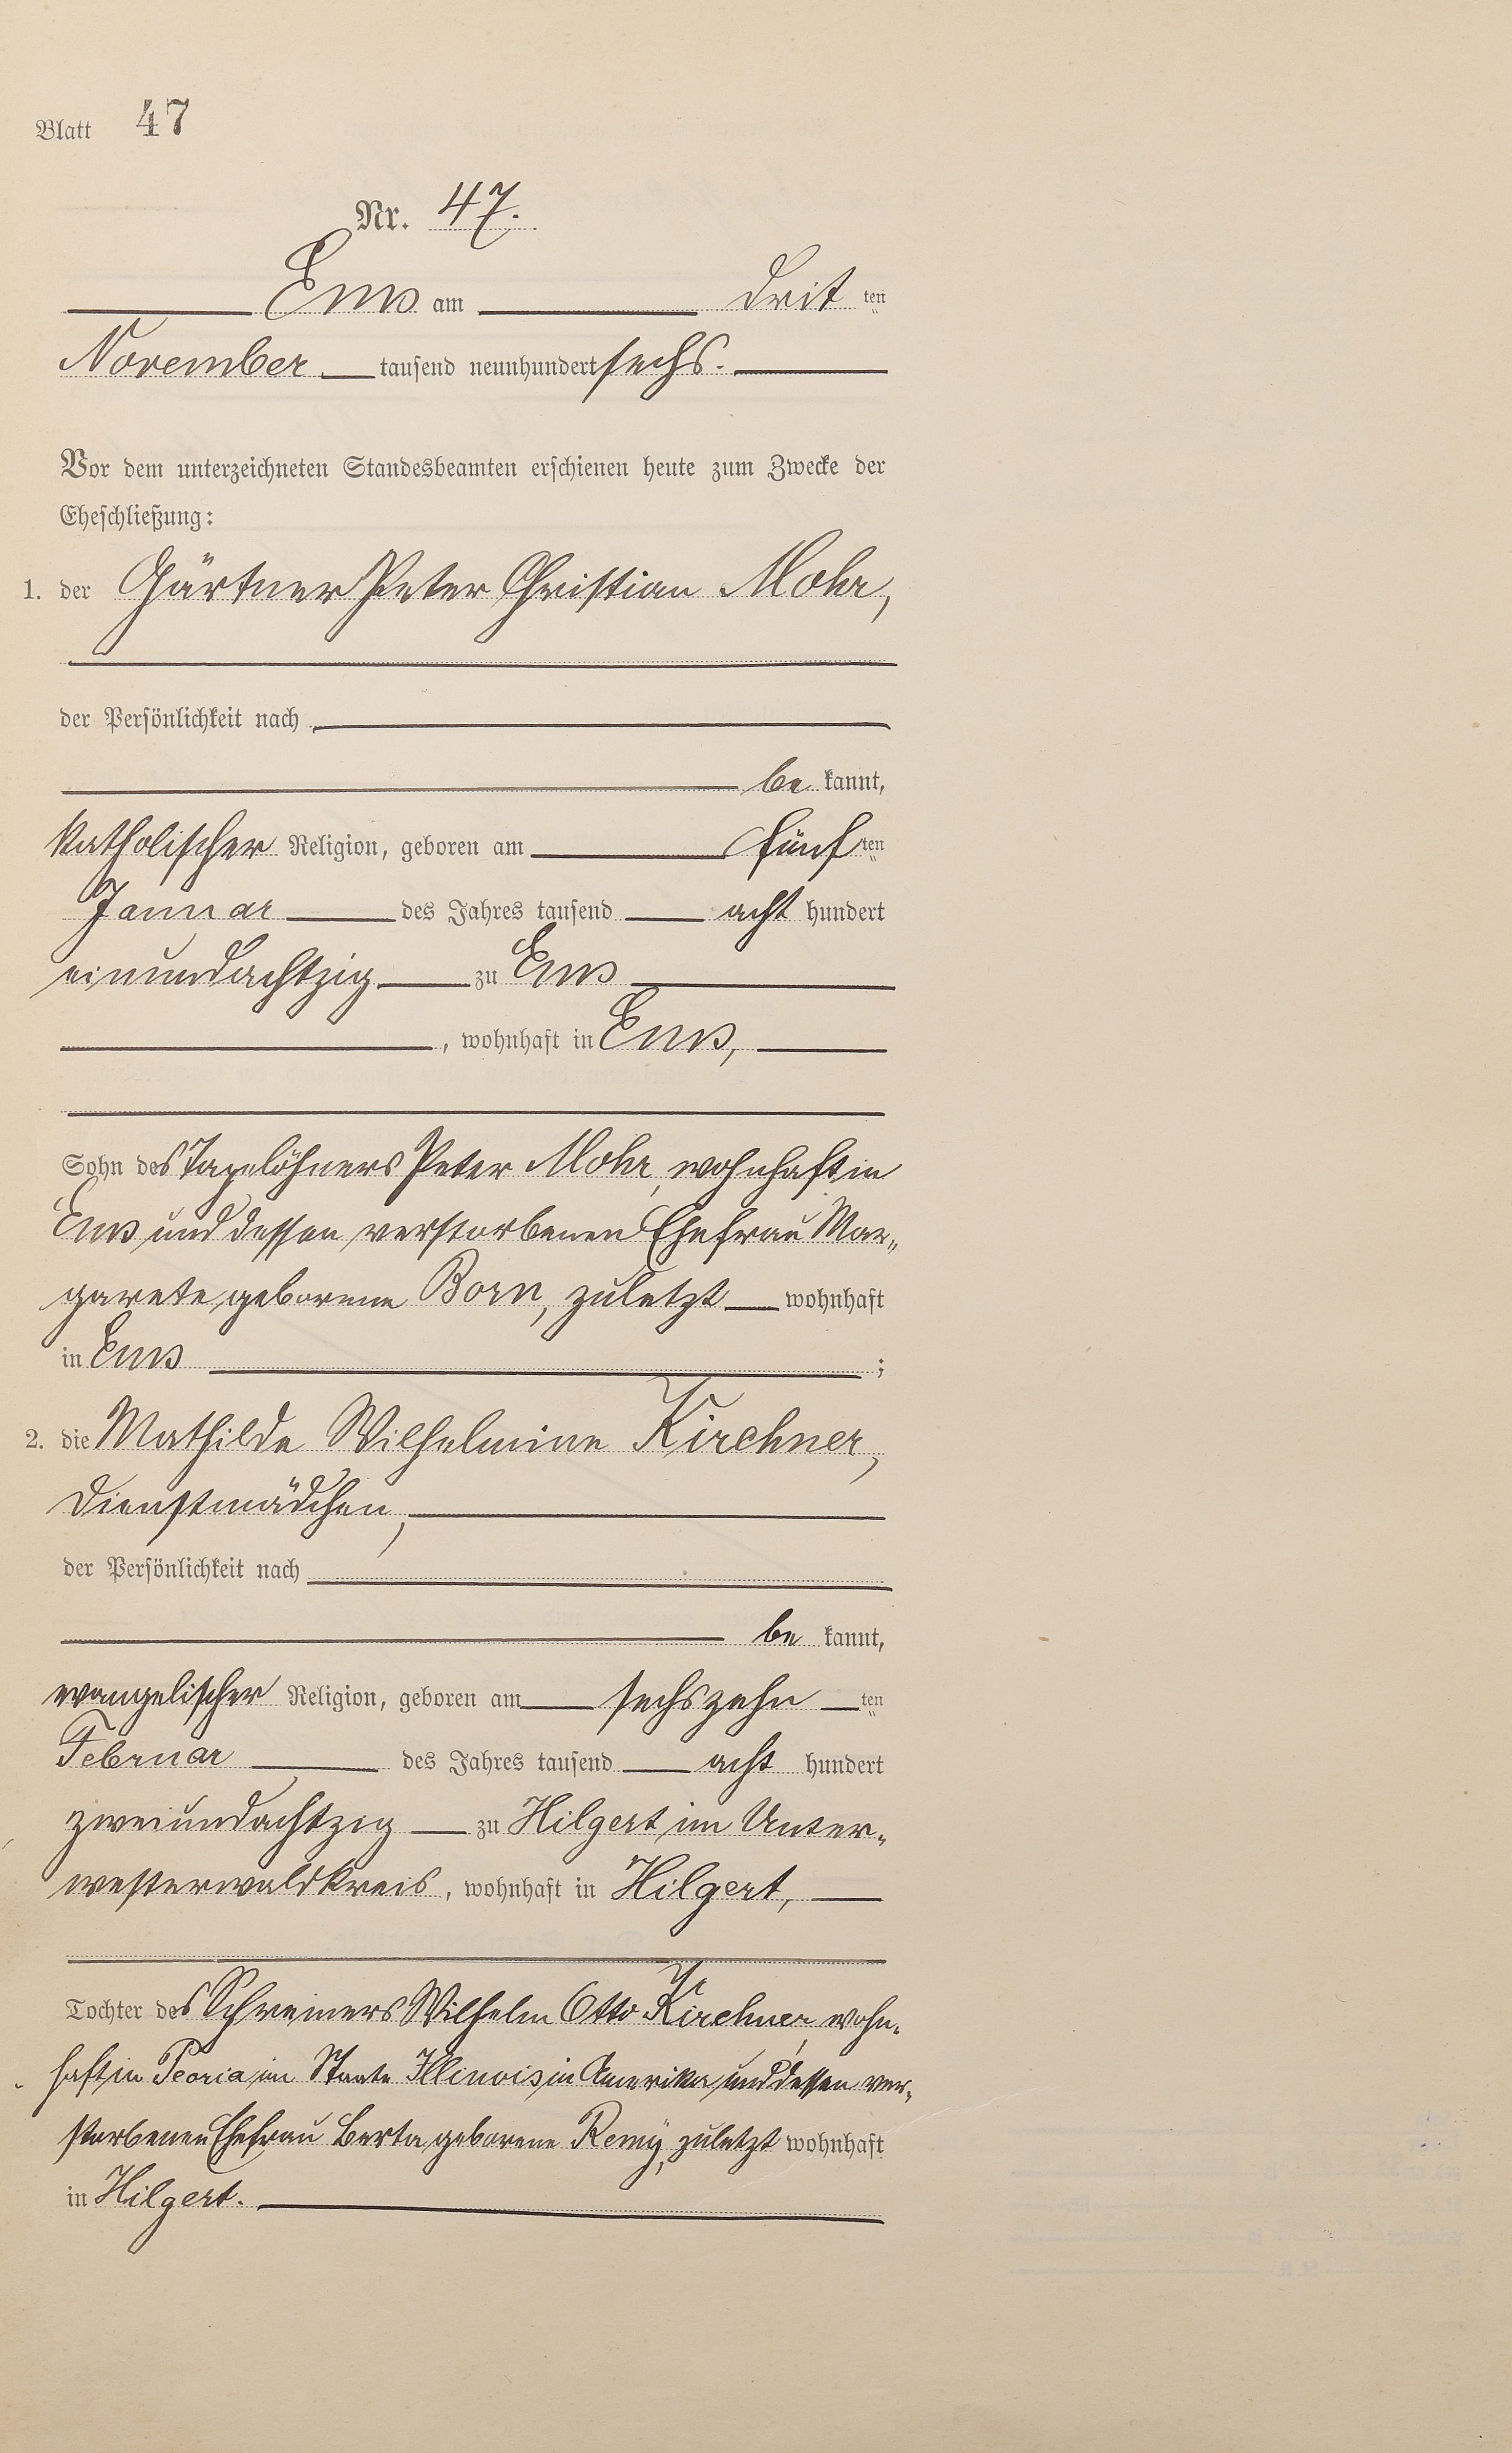 Blatt 47
Nr. 47.
Ems am drit ten
November tausend neunhundert sechs.
Vor dem unterzeichneten Standesbeamten erschienen heute zum Zwecke der
Eheschließung:
1. der Gärtner Peter Christian Mohr,
der Persönlichkeit nach
be kannt,
katholischer Religion, geboren am fünf ten
Januar des Jahres tausend acht hundert
einundachtzig zu Ems
, wohnhaft in Ems,
Sohn des Tagelöhners Peter Mohr, wohnhaft in
Ems und dessen verstorbenen Ehefrau Mar„
garete, geborene Born, zuletzt wohnhaft
in Ems ;
2. die Mathilde Wilhelmine Kirchner,
Dienstmädchen,
der Persönlichkeit nach
be kannt,
evangelischer Religion, geboren am sechszehn ten
Februar des Jahres tausend acht hundert
zweiundachtzig zu Hilgert im Unter„
westerwaldkreis, wohnhaft in Hilgert,
Tochter des Schreiners Wilhelm Otto Kirchner, wohn„
haft in Peoria im Staate Illinois in Amerika und dessen ver„
storbenen Ehefrau Berta geborene Remÿ, zuletzt wohnhaft
in Hilgert.